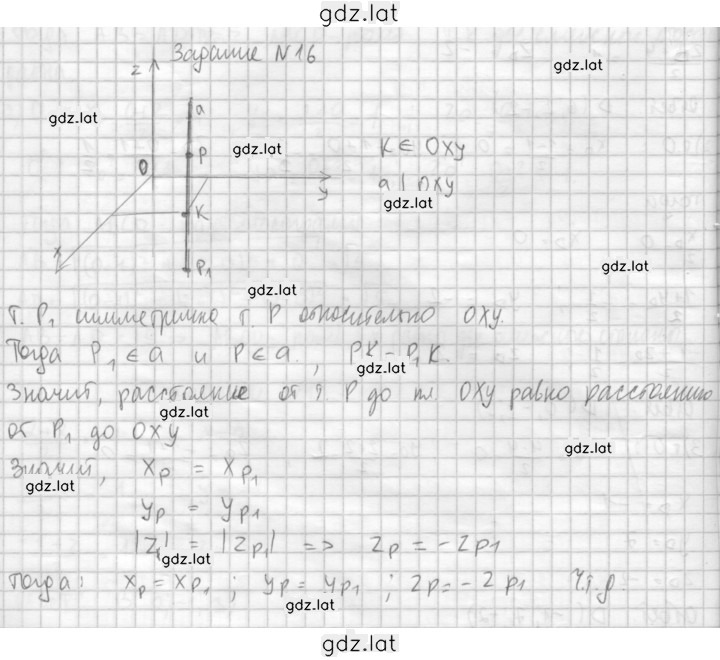 gdz.lat
Задание N16
gdz.lat
z
a
gdz.lat
P
gdz.lat
K ∈ Oxy
O
a ⊥ Oxy
y
gdz.lat
K
x
P₁
gdz.lat
gdz.lat
т. P₁ симметрична т. P относительно Oxy.
Тогда P₁ ∈ a и P ∈ a, PK = P₁K.
gdz.lat
Значит, расстояние от т. P до пл. Oxy равно расстоянию
gdz.lat
от P₁ до Oxy
gdz.lat
Значит, xP = xP₁
gdz.lat
yP = yP1
|Z| = |ZP₁| => ZP = -ZP1
gdz.lat
Тогда: xP = xP₁ ; yP = yP1 ; ZP = -ZP1 Ч.т.д.
gdz.lat
gdz.lat